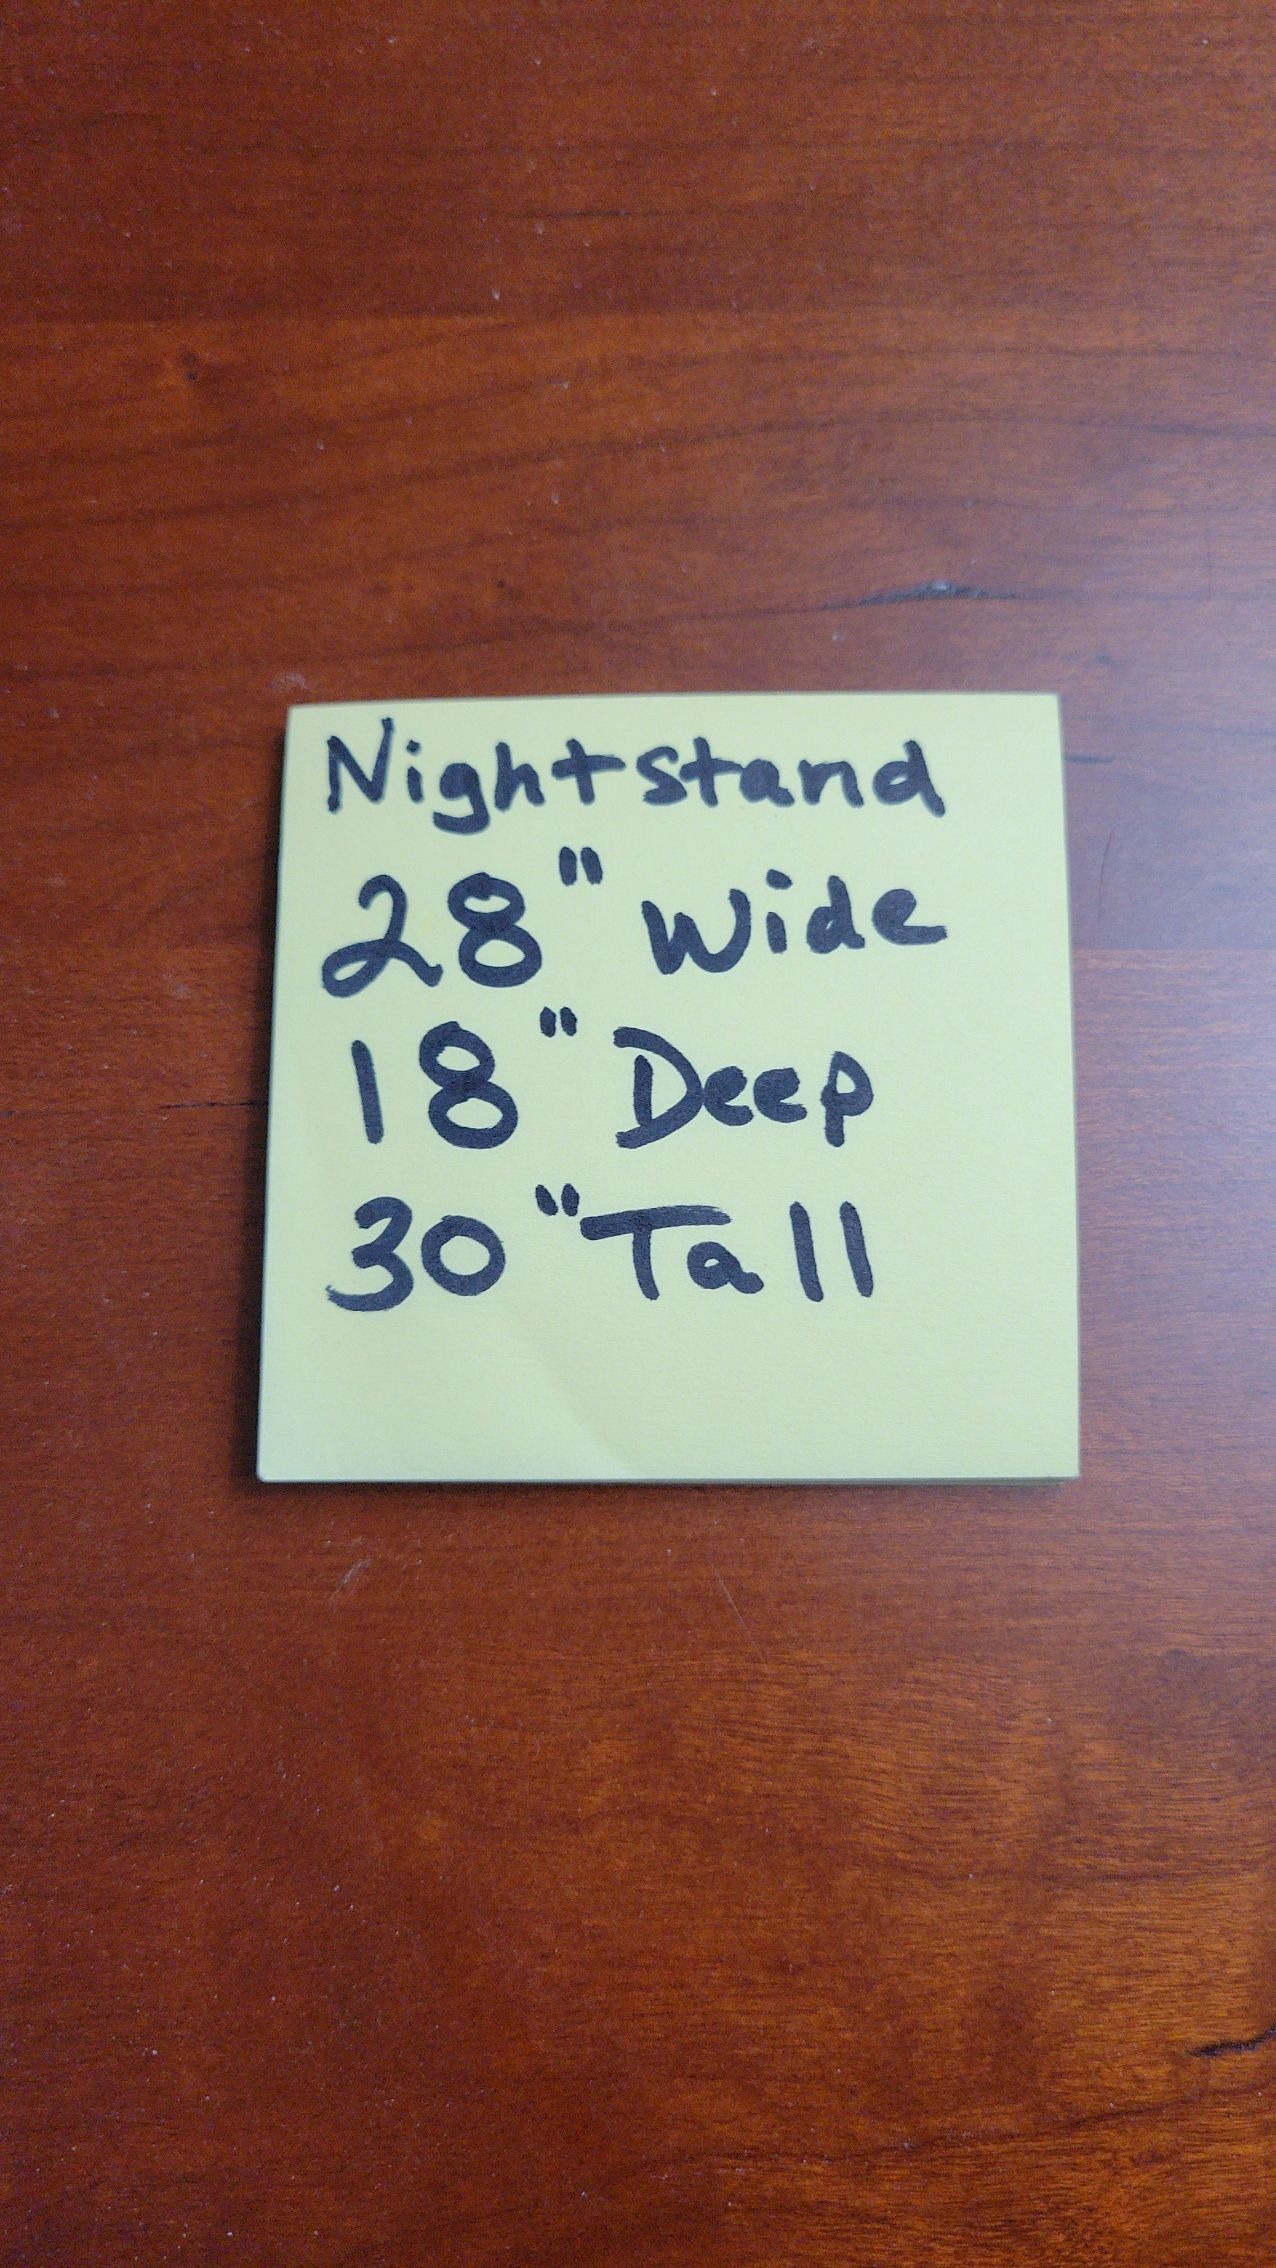 Nightstand
28" Wide
18" Deep
30" Tall